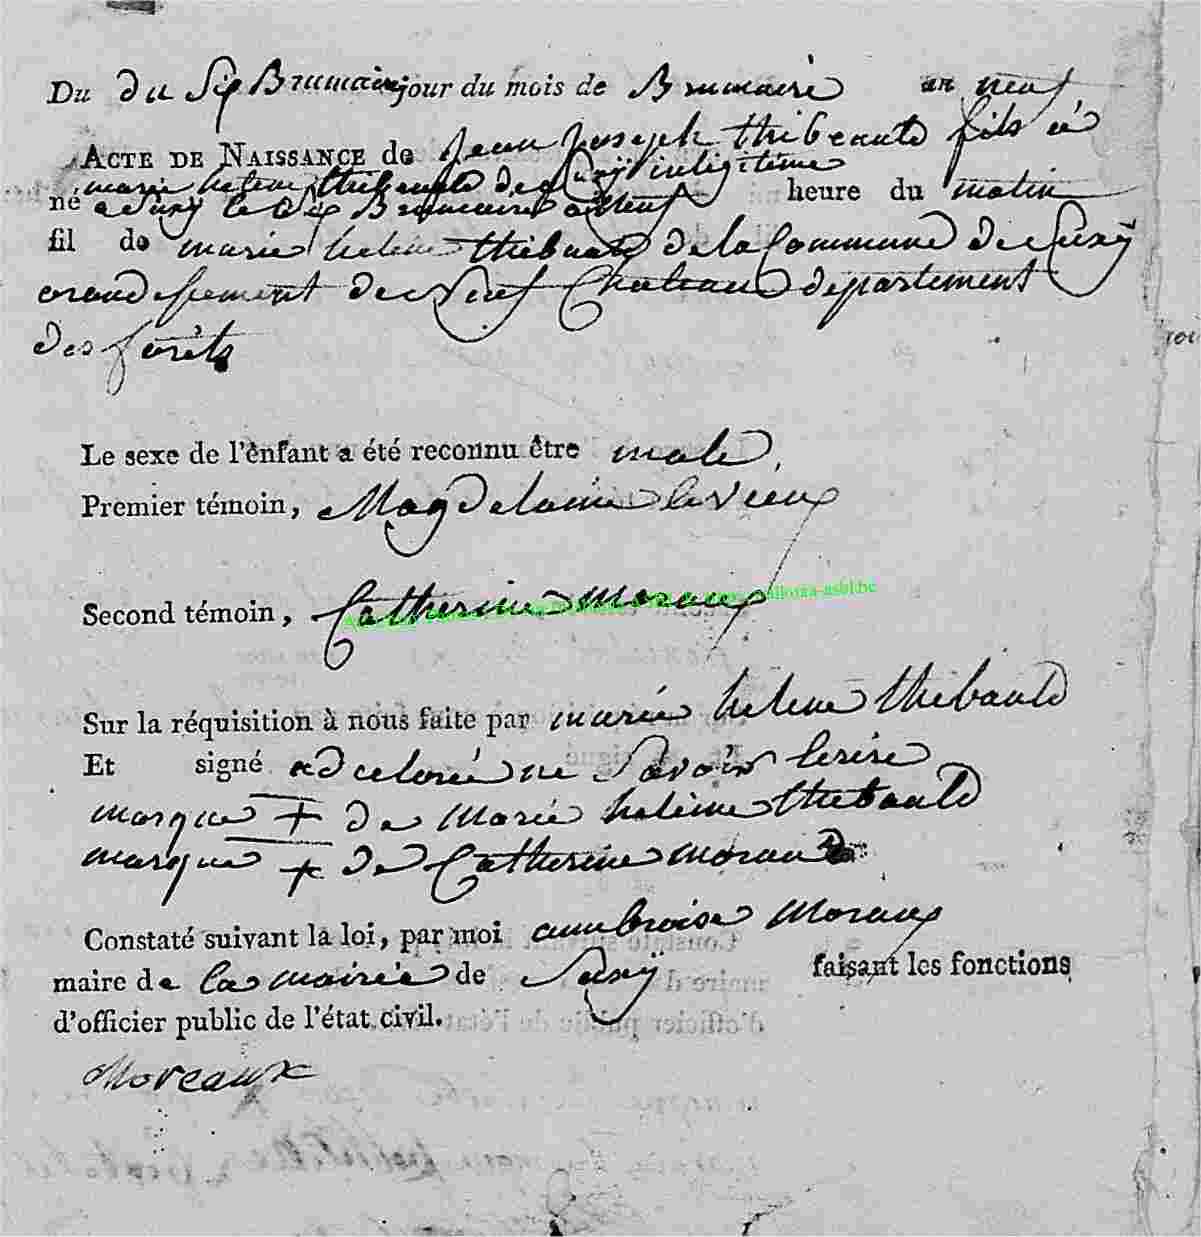 Du du Six Brumaire jour du mois de Brumaire an neuf
ACTE DE NAISSANCE de Jean Joseph thibeauld fils à
marie helene thibauld de Suxÿ inligitime
né a Suxy le Six Brumaire a neuf heure du matin
fil de marie helene thibauld de la Commune de Suxÿ
arondissement de Neuf Chateau departement
des forêts
Le sexe de l'enfant a été reconnu être male.
Premier témoin, Magdelaine
Second témoin, Catherine Moraux
Sur la réquisition à nous faite par marie helene thibauld
Et signé a declaré ne Savoir Ecrire
marque + de Marie helène thibauld
marque + de Catherine moraux
Constaté suivant la loi, par moi ambroise Moraux
maire de la mairie de Suxÿ faisant les fonctions
d'officier public de l'état civil.
Moreaux